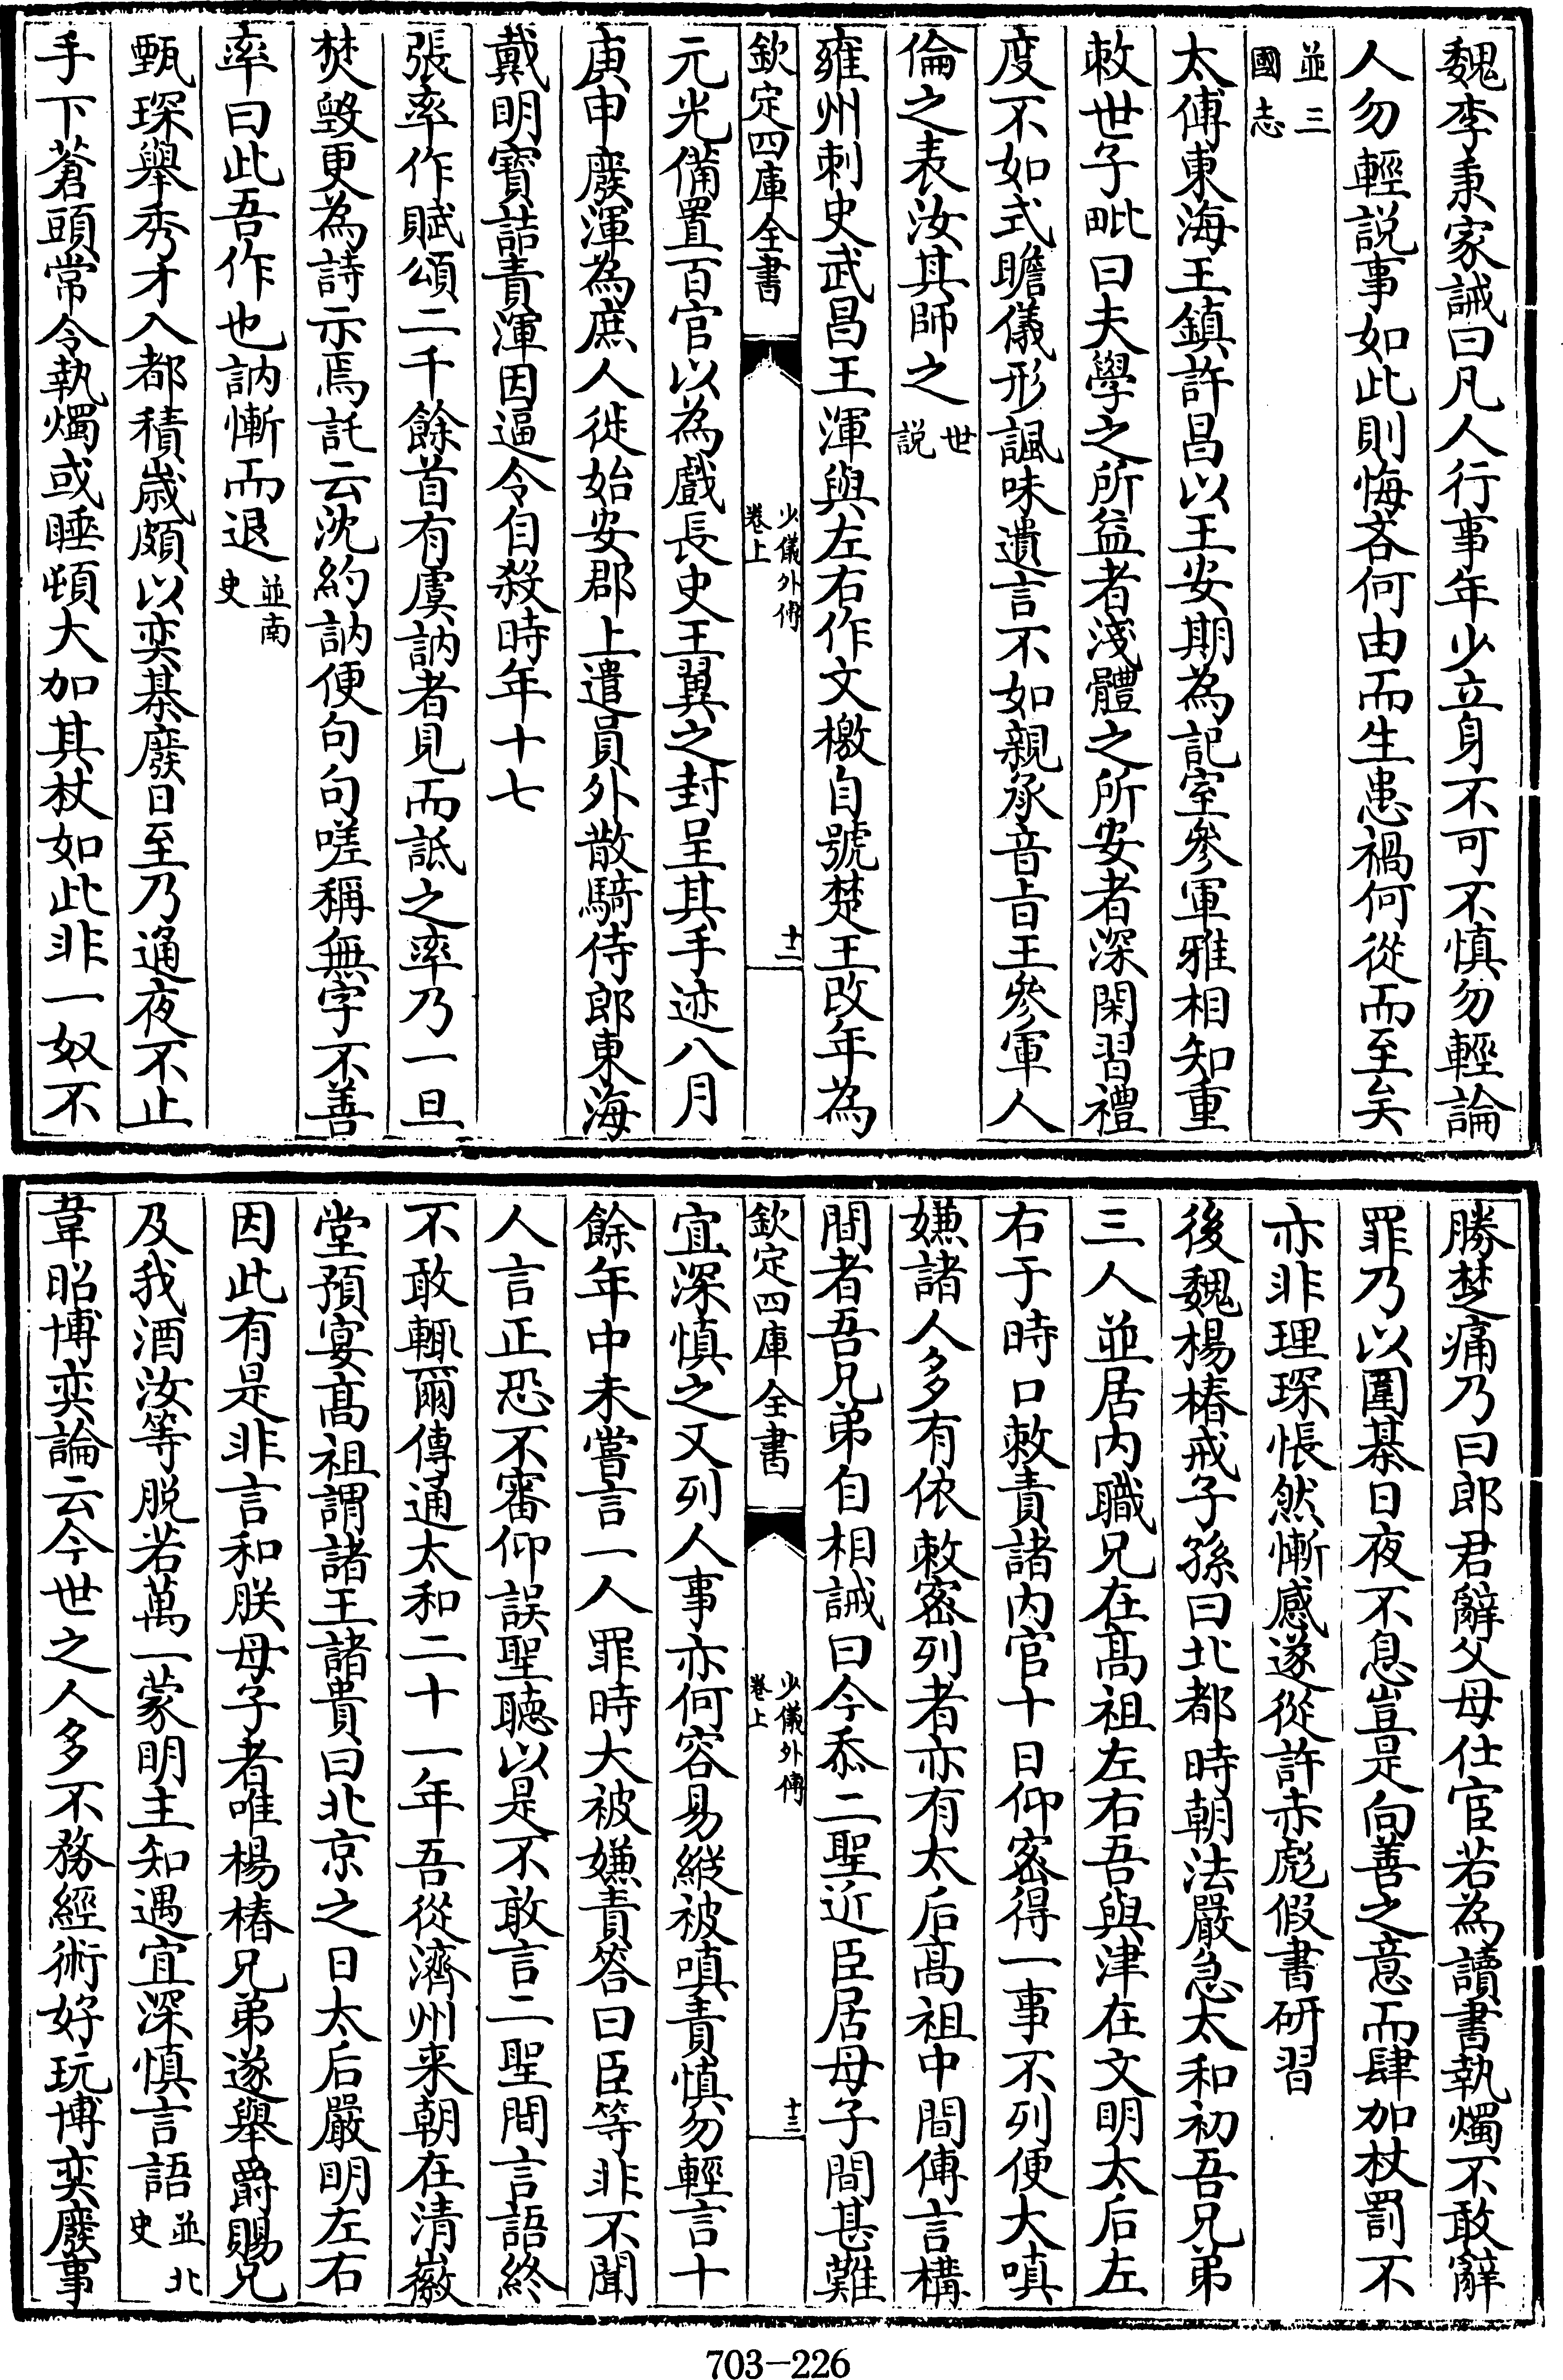 魏李秉家誡曰凡人行事年少立身不可不慎勿輕論
人勿輕説事如此則悔吝何由而生患禍何從而至矣
並三
國志
太傅東海王鎮許昌以王安期為記室參軍雅相知重
敕世子毗曰夫學之所益者淺體之所安者深閑習禮
度不如式瞻儀形諷味遺言不如親承音旨王參軍人
倫之表汝其師之世
説
雍州刺史武昌王渾與左右作文檄自號楚王改年為
欽定四庫全書
少儀外傳
卷上
十二
元光備置百官以為戲長史王翼之封呈其手迹八月
庚申廢渾為庶人徙始安郡上遣員外散騎侍郎東海
戴明寶詰責渾因逼令自殺時年十七
張率作賦頌二千餘首有虞訥者見而詆之率乃一旦
焚毀更為詩示焉託云沈約訥便句句嗟稱無字不善
率曰此吾作也訥慚而退並南
史
甄琛舉秀才入都積歲頗以奕棊廢日至乃通夜不止
手下蒼頭常令執燭或睡頓大加其杖如此非一奴不
勝楚痛乃曰郎君辭父母仕宦若為讀書執燭不敢辭
罪乃以圍棊日夜不息豈是向善之意而肆加杖罰不
亦非理琛悵然慚感遂從許赤彪假書研習
後魏楊椿戒子孫曰北都時朝法嚴急太和初吾兄弟
三人並居内職兄在髙祖左右吾與津在文明太后左
右于時口敕責諸内官十日仰密得一事不列便大嗔
嫌諸人多有依敕密列者亦有太后髙祖中間傳言構
間者吾兄弟自相誡曰今忝二聖近臣居母子間甚難
欽定四庫全書
少儀外傳
卷上
十三
宜深慎之又列人事亦何容易縱被嗔責慎勿輕言十
餘年中未嘗言一人罪時大被嫌責答曰臣等非不聞
人言正恐不審仰誤聖聽以是不敢言二聖間言語終
不敢輒爾傳通太和二十一年吾從濟州来朝在清徽
堂預宴髙祖謂諸王諸貴曰北京之日太后嚴明左右
因此有是非言和朕母子者唯楊椿兄弟遂舉爵賜兄
及我酒汝等脱若萬一蒙明主知遇宜深慎言語並北
史
韋昭博奕論云今世之人多不務經術好玩博奕廢事
703-226